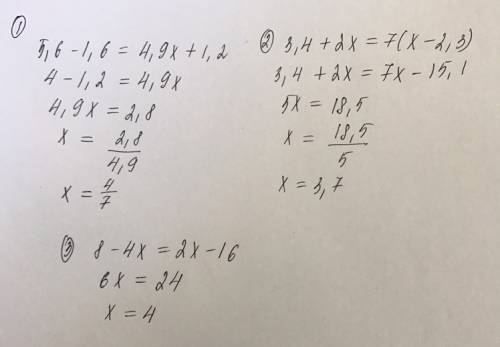 ① 5,6 - 1,6 = 4,9x + 1,2
4 - 1,2 = 4,9x
4,9x = 2,8
x = 2,8/4,9
x = 4/7
② 3,4 + 2x = 7(x - 2,3)
3,4 + 2x = 7x - 15,1
5x = 18,5
x = 18,5/5
x = 3,7
③ 8 - 4x = 2x - 16
6x = 24
x = 4